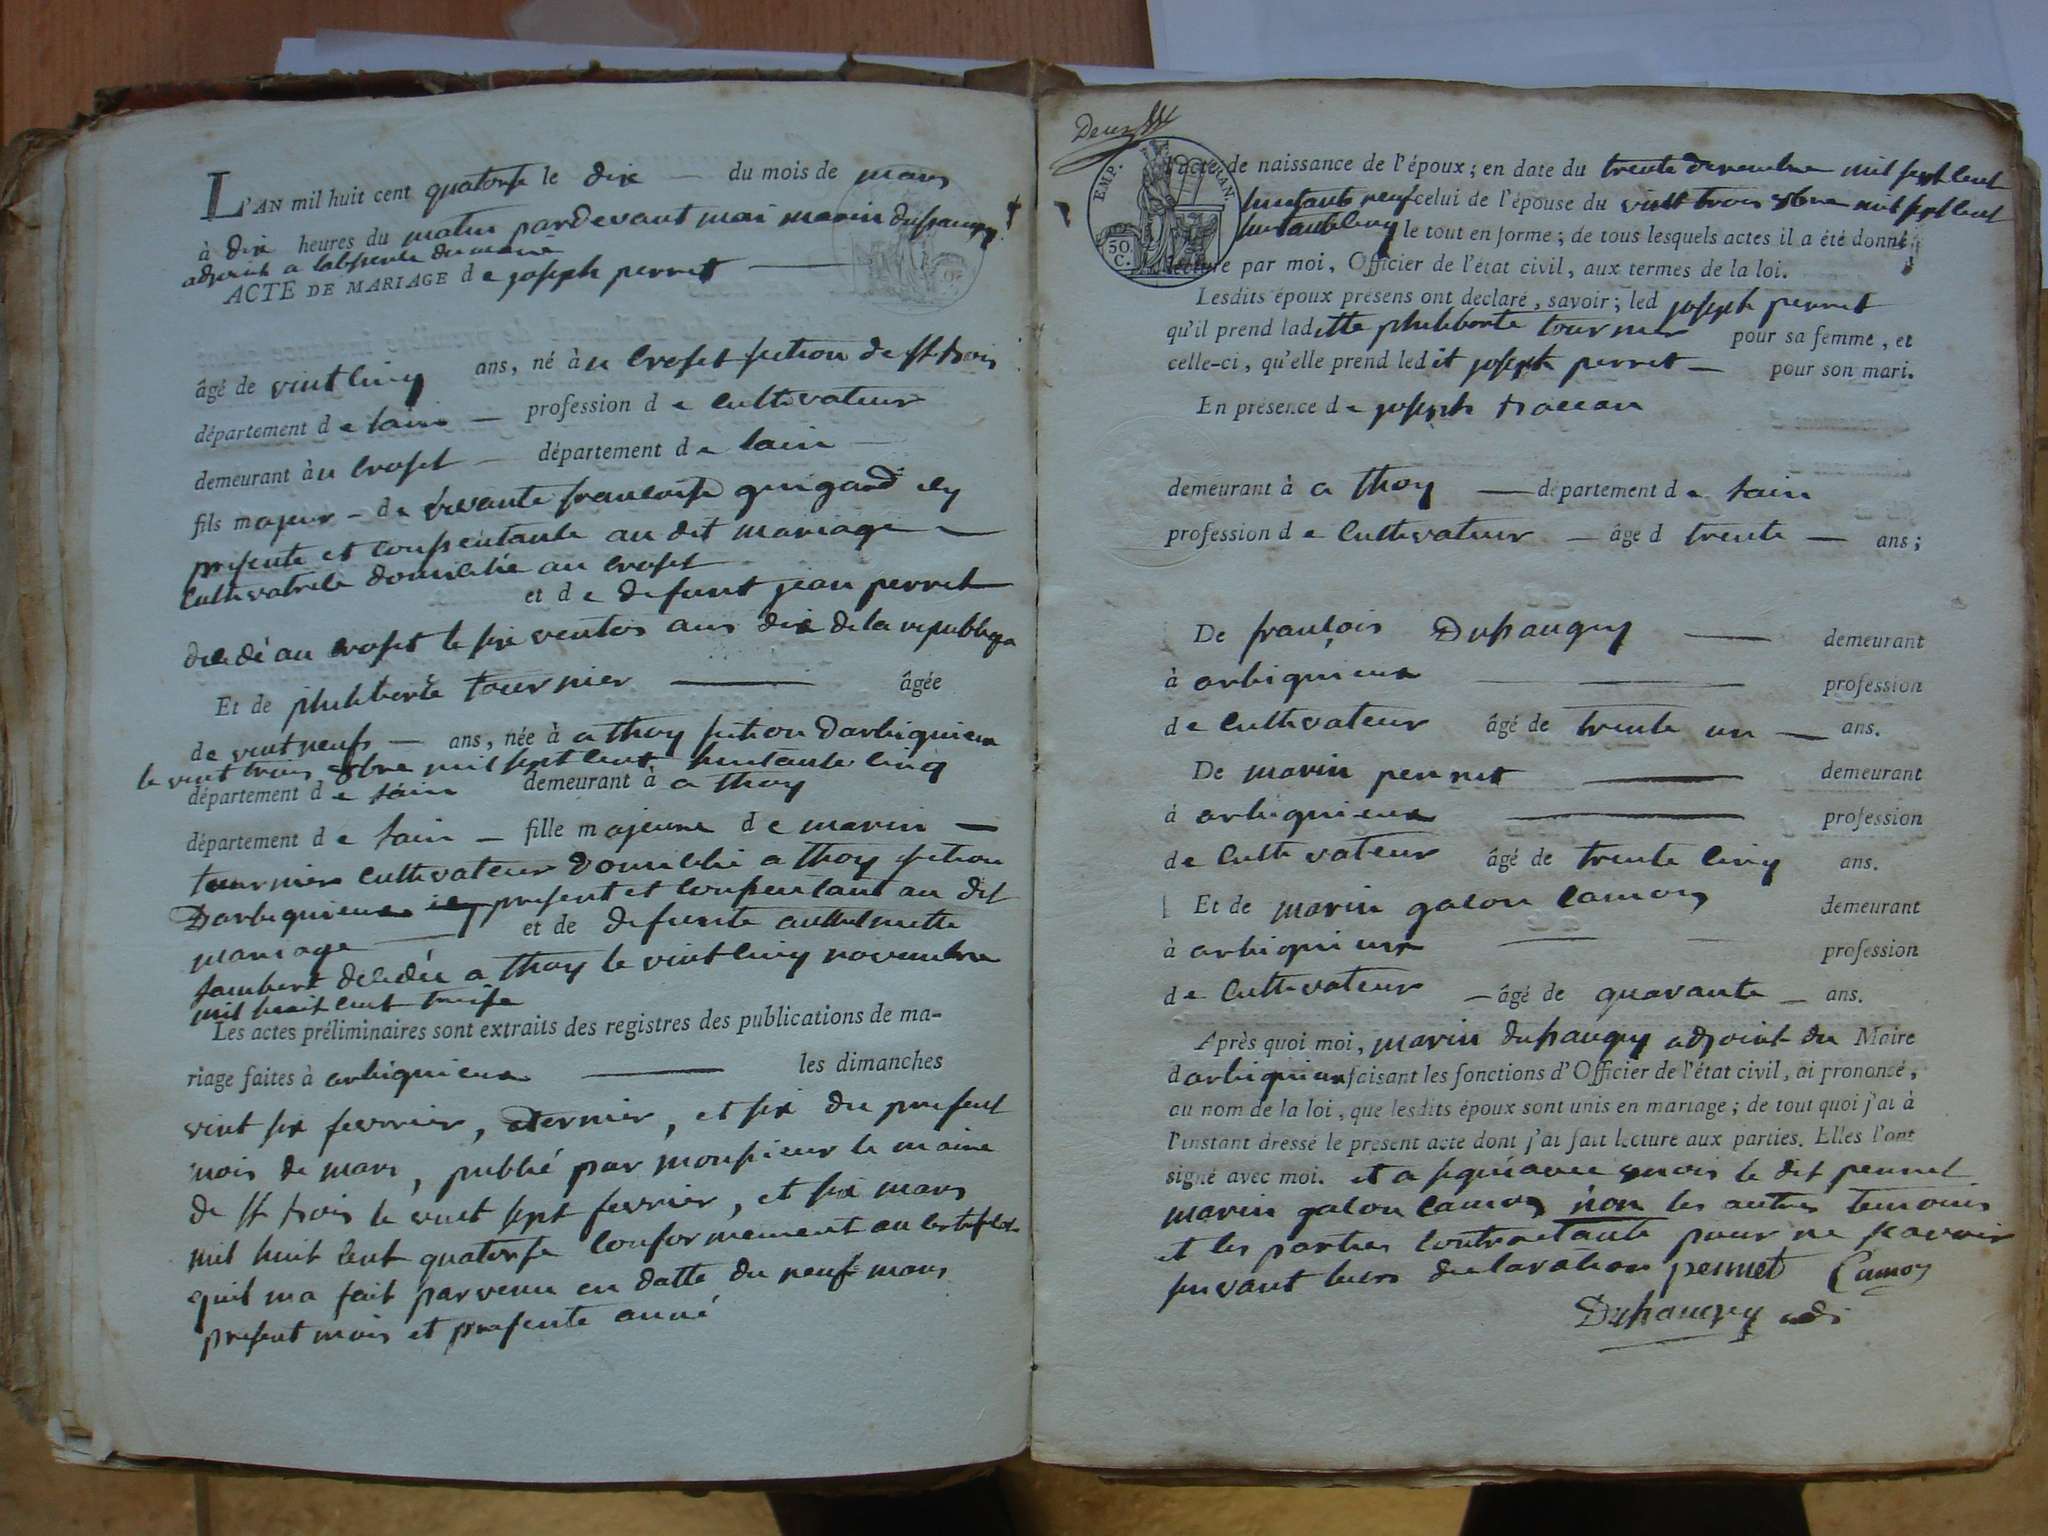 L'AN mil huit cent quatorse le dix du mois de mars
à dix heures du matin pardevant moi marin dupraugey
adjoint a labsence du maire
ACTE DE MARIAGE de joseph perret
âgé de vint cinq ans, né àu crospt section de st bois
département de lain profession de cultivateur
demeurant àu crospt département de lain
fils majeur de vivante francoise guigard icy
presente et consentante au dit mariage
cultivatrice domicilié au crospt
et de defunt jean perret
decedé au crospt le six ventos ans dix de la republiqu
Et de philiberte tournier âgée
de vint neufs ans, née à a thoy section darbiquieux
le vint trois 8bre mil sept cent huitante cinq
département de lain demeurant à a thoy
département de lain fille majeure de marin
tournier cultivateur domicilié a thoy section
Darbiquieux icy present et consentant au dit
mariage et de defunte anthelmette
jambert decedée a thoy le vint cinq novembre
mil huit cent treise
Les actes préliminaires sont extraits des registres des publications de ma-
riage faites à arbiquieux les dimanches
vint six fevrier, dernier, et six du present
mois de mars, publié par monsieur le maire
de st bois le vint sept fevrier, et six mars
mil huit cent quatorse conformement au certificat
quil ma fait parvenu en datte du neuf mars
present mois et presente anné
Deux
EMP. FRAN.
50
C.
l'acte de naissance de l'époux; en date du trente decembre mil sept cent
huitante neuf celui de l'épouse du vint trois 8bre mil sept cent
huitante cinq le tout en forme; de tous lesquels actes il a été donné
lecture par moi, Officier de l'état civil, aux termes de la loi.
Lesdits époux présens ont declaré, savoir; led joseph perret
qu'il prend laditte philiberte tournier pour sa femme, et
celle-ci, qu'elle prend ledit joseph perret pour son mari.
En présence de joseph
demeurant à a thoy département de lain
profession de cultivateur âge d trente ans;
De françois Dupraugey demeurant
à arbiquieux profession
de cultivateur âgé de trente un ans.
De marin perret demeurant
à arbiquieux profession
de cultivateur âgé de trente cinq ans.
Et de marin galon camoz demeurant
à arbiquieux profession
de cultivateur âgé de quarante ans.
Après quoi moi, marin dupraugey adjoint du Maire
darbiquieux faisant les fonctions d'Officier de l'état civil, ai prononcé,
au nom de la loi, que lesdits époux sont unis en mariage; de tout quoi j'ai à
l'instant dressé le présent acte dont j'ai fait lecture aux parties. Elles l'ont
signé avec moi. et a signé avec mois le dit perret
marin galon camoz non les autres temoins
et les parties contractante pour ne scavoir
suivant leurs declaration perret Camoz
Dupraugey adi